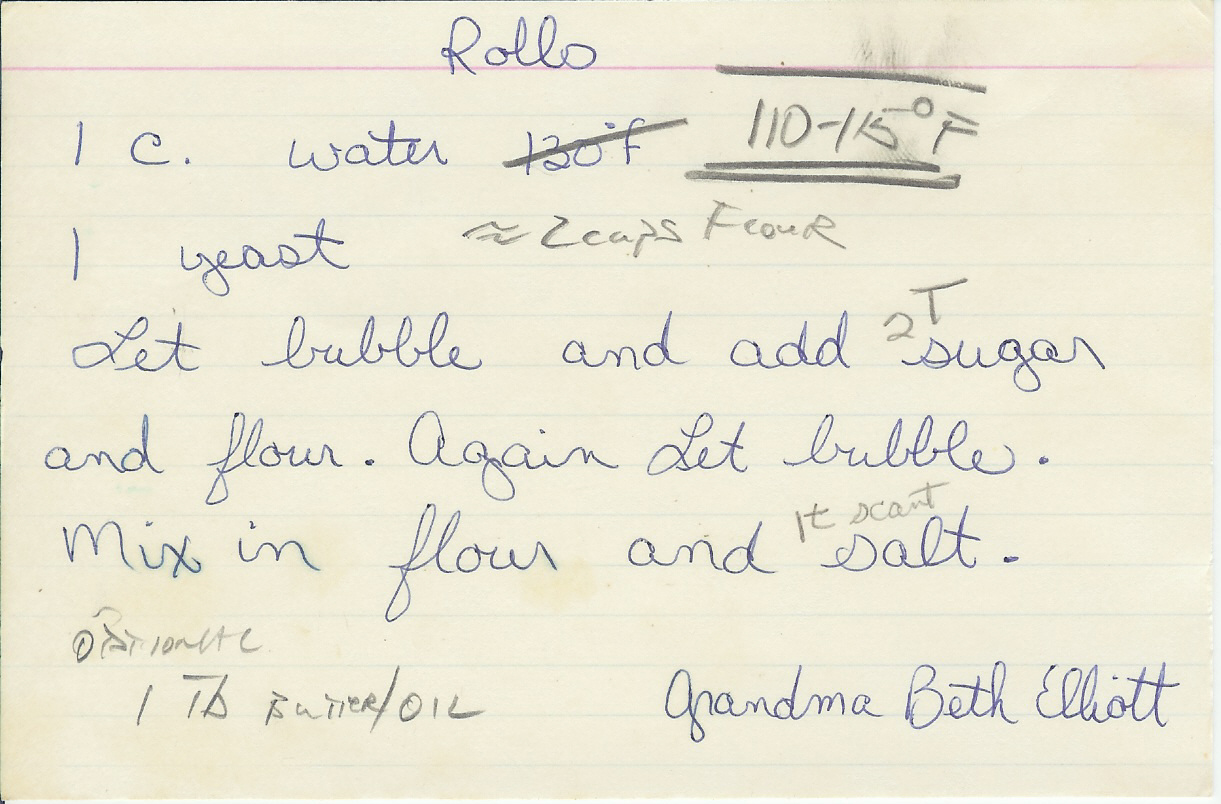 Rolls
1 C. water 130°F 110-115°F
1 yeast ≈ 2 cups Flour
Let bubble and add 2 T sugar
and flour. Again Let bubble.
Mix in flour and 1t scant salt.
Optional
1 Tb Butter/Oil
Grandma Beth Elliott